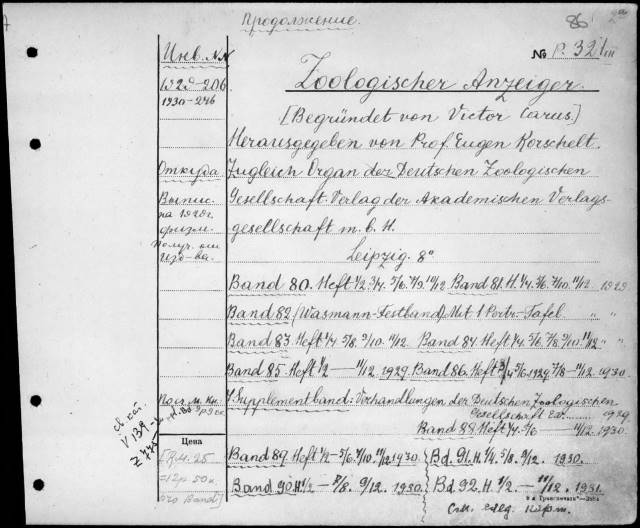 Продолжение.
86
Инв. №№
№ P. 321 III
1929-206
1930-246
Zoologischer Anzeiger.
[Begründet von Victor Carus.]
Herausgegeben von Prof. Eugen Korschelt.
Откуда
Zugleich Organ der Deutschen Zoologischen
Выпис-
Gesellschaft. Verlag der Akademischen Verlags-
gesellschaft m. b. H.
Получ. от
Изд-ва.
Leipzig. 8°
Band 80. Heft 1/2. 3/4. 5/6. 7/9. 10/12. Band 81. H. 1/4. 5/6. 7/10. 11/12. 1929
Band 82 (Wasmann-Festband) Mit 1 Portr.-Tafel. " "
Band 83. Heft 1/4. 5/8. 9/10. 11/12. Band 84. Heft 1/4. 5/6. 7/8. 9/10. 11/12 " "
Band 85. Heft 1/2 — 11/12. 1929. Band 86. Heft 3/4 5/6. 1929. 7/8 — 11/12. 1930.
Supplementband: Verhandlungen der Deutschen Zoologischen
Gesellschaft 1929
Band 88. Heft 1/4. 5/6 — 11/12. 1930.
V 139
Z 775
Цена
Band 89. Heft 1/2 - 5/6. 7/10. 11/12. 1930. Bd. 91. H. 1/4. 5/8. 9/12. 1930.
Band 90. H 1/2 — 7/8. 9/12. 1930. Bd. 92. H. 1/2. — 11/12. 1931.
См. след. карт.